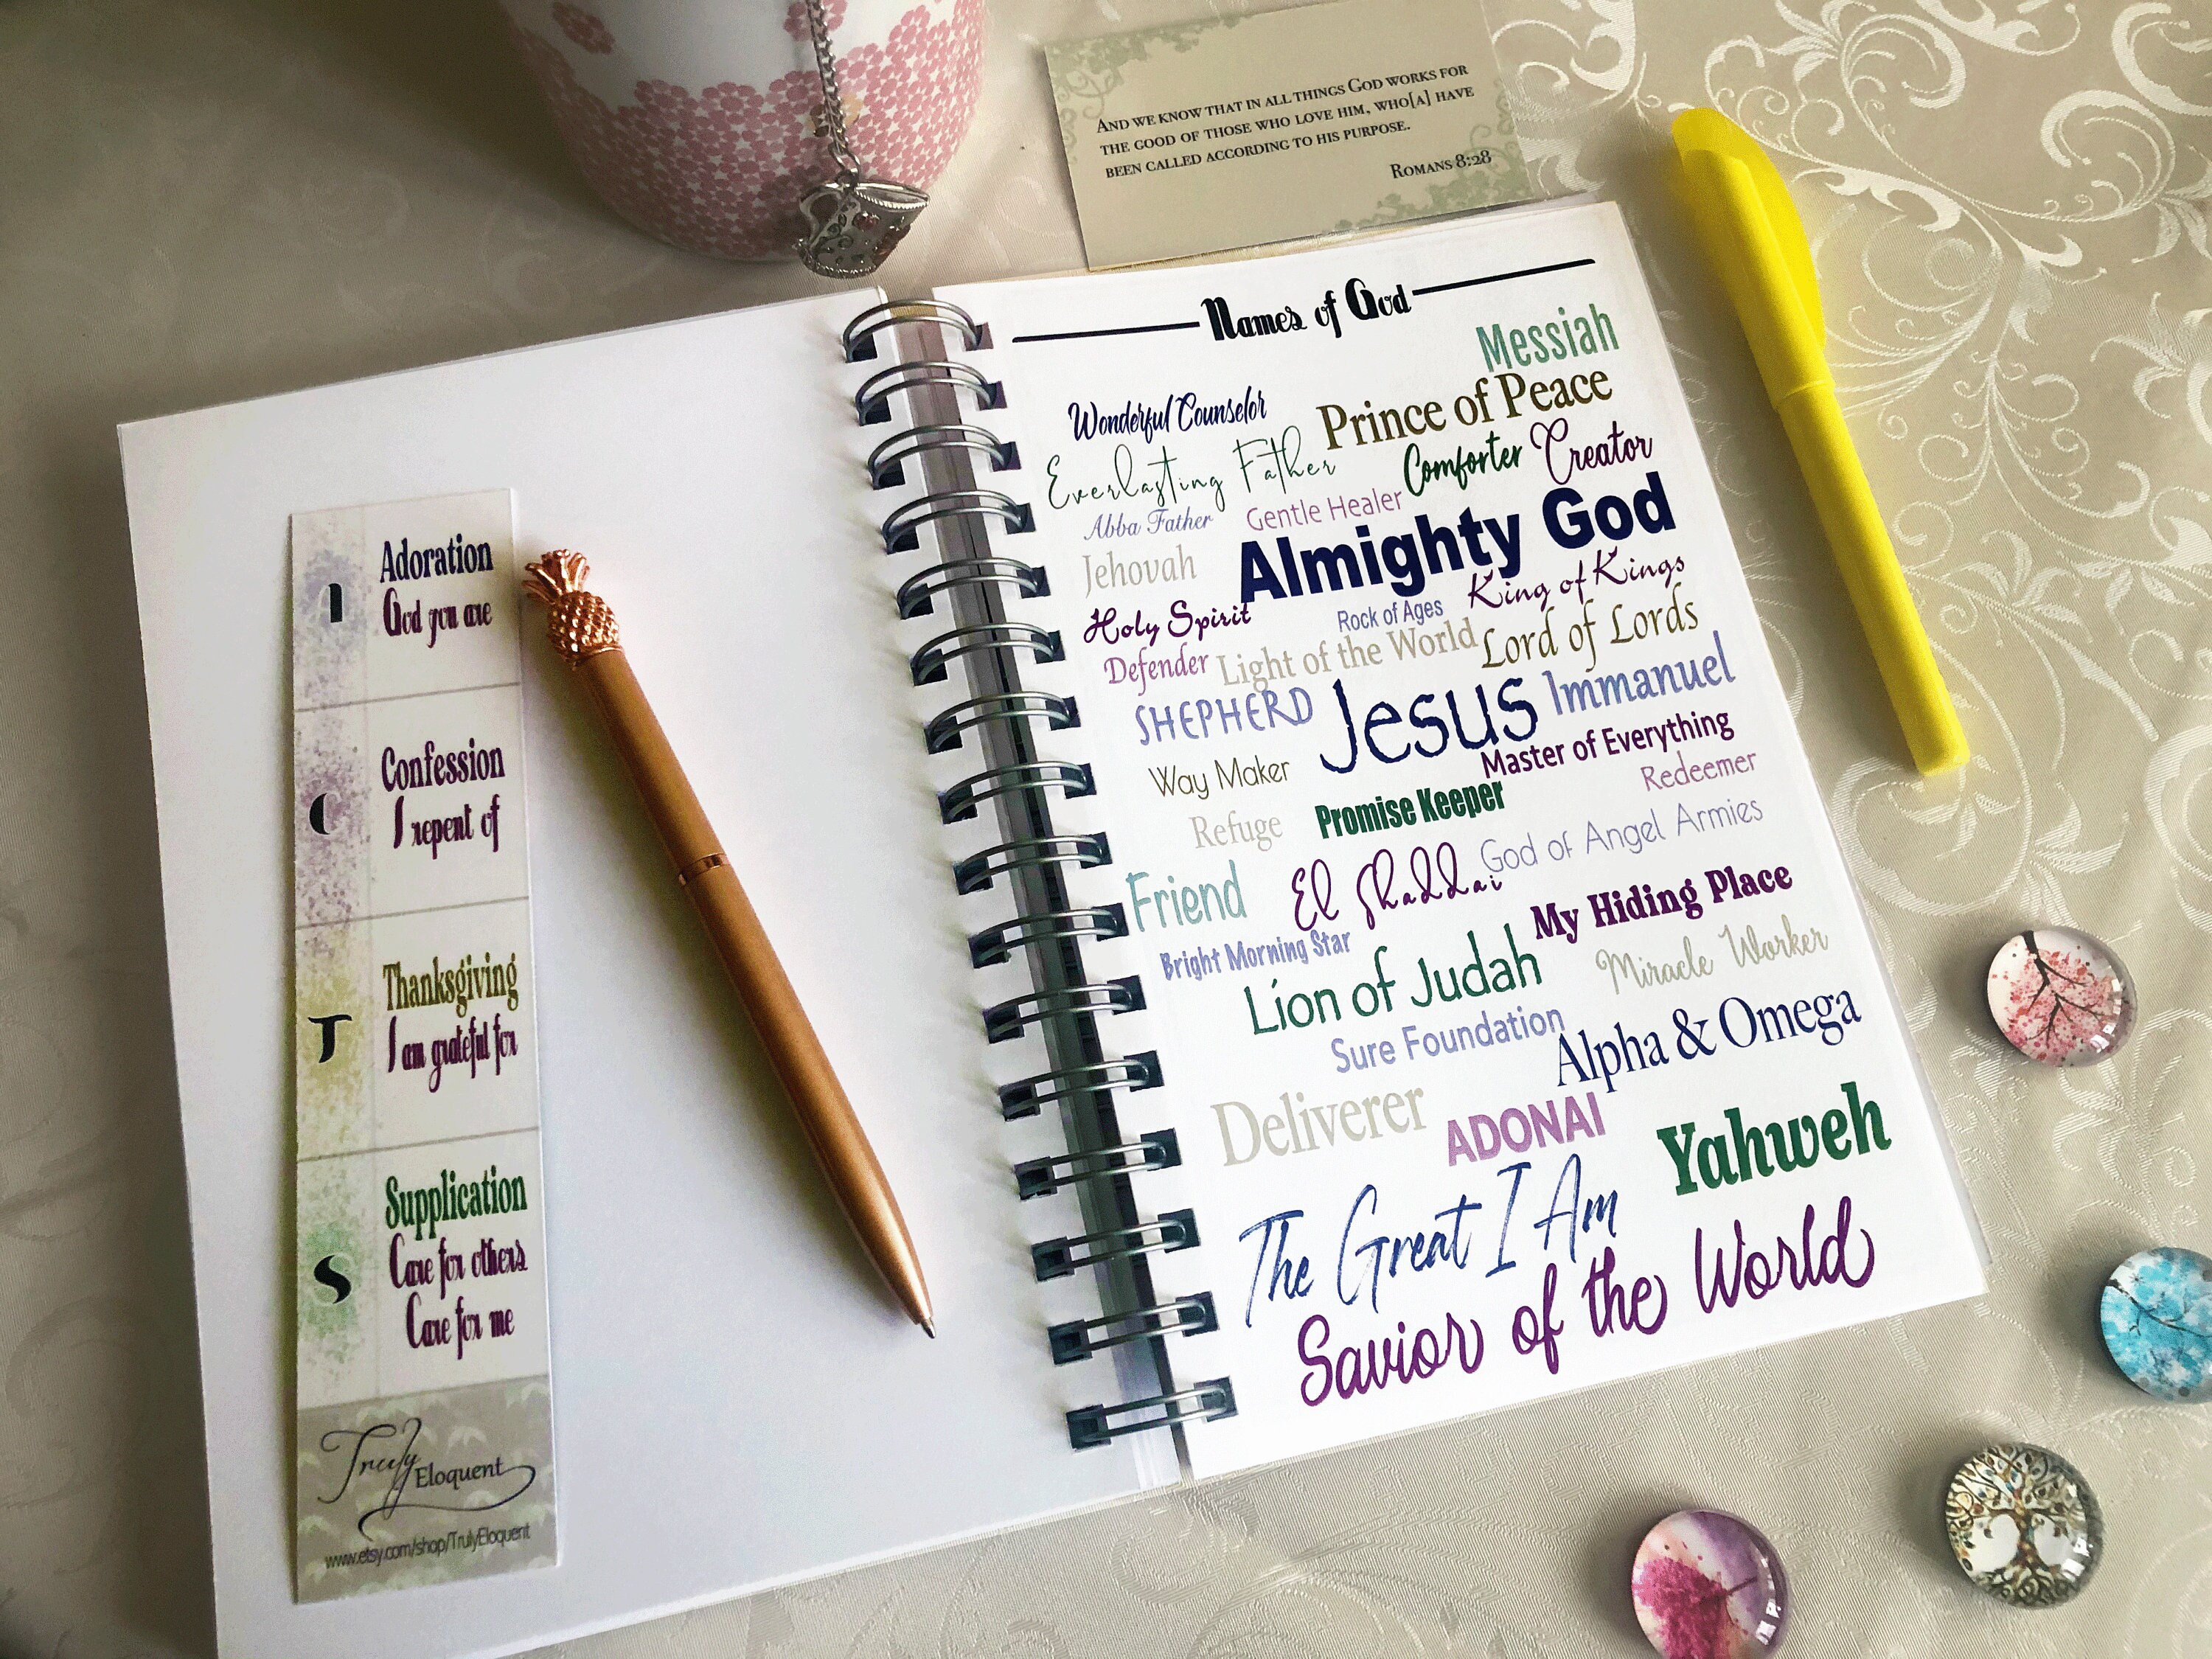 AND WE KNOW THAT IN ALL THINGS GOD WORKS FOR
THE GOOD OF THOSE WHO LOVE HIM, WHO[A] HAVE
BEEN CALLED ACCORDING TO HIS PURPOSE.
ROMANS 8:28
Adoration
God you are
C
Confession
I repent of
T
Thanksgiving
I am grateful for
S
Supplication
Care for others
Care for me
Truly Eloquent
www.etsy.com/shop/TrulyEloquent
Names of God
Messiah
Wonderful Counselor
Prince of Peace
Everlasting Father
Comforter
Creator
Abba Father
Gentle Healer
Almighty God
Jehovah
King of Kings
Holy Spirit
Rock of Ages
Defender
Light of the World
Lord of Lords
SHEPHERD
Jesus
Immanuel
Way Maker
Master of Everything
Redeemer
Refuge
Promise Keeper
God of Angel Armies
Friend
El Shaddai
My Hiding Place
Bright Morning Star
Lion of Judah
Miracle Worker
Sure Foundation
Alpha & Omega
Deliverer
ADONAI
Yahweh
The Great I Am
Savior of the World